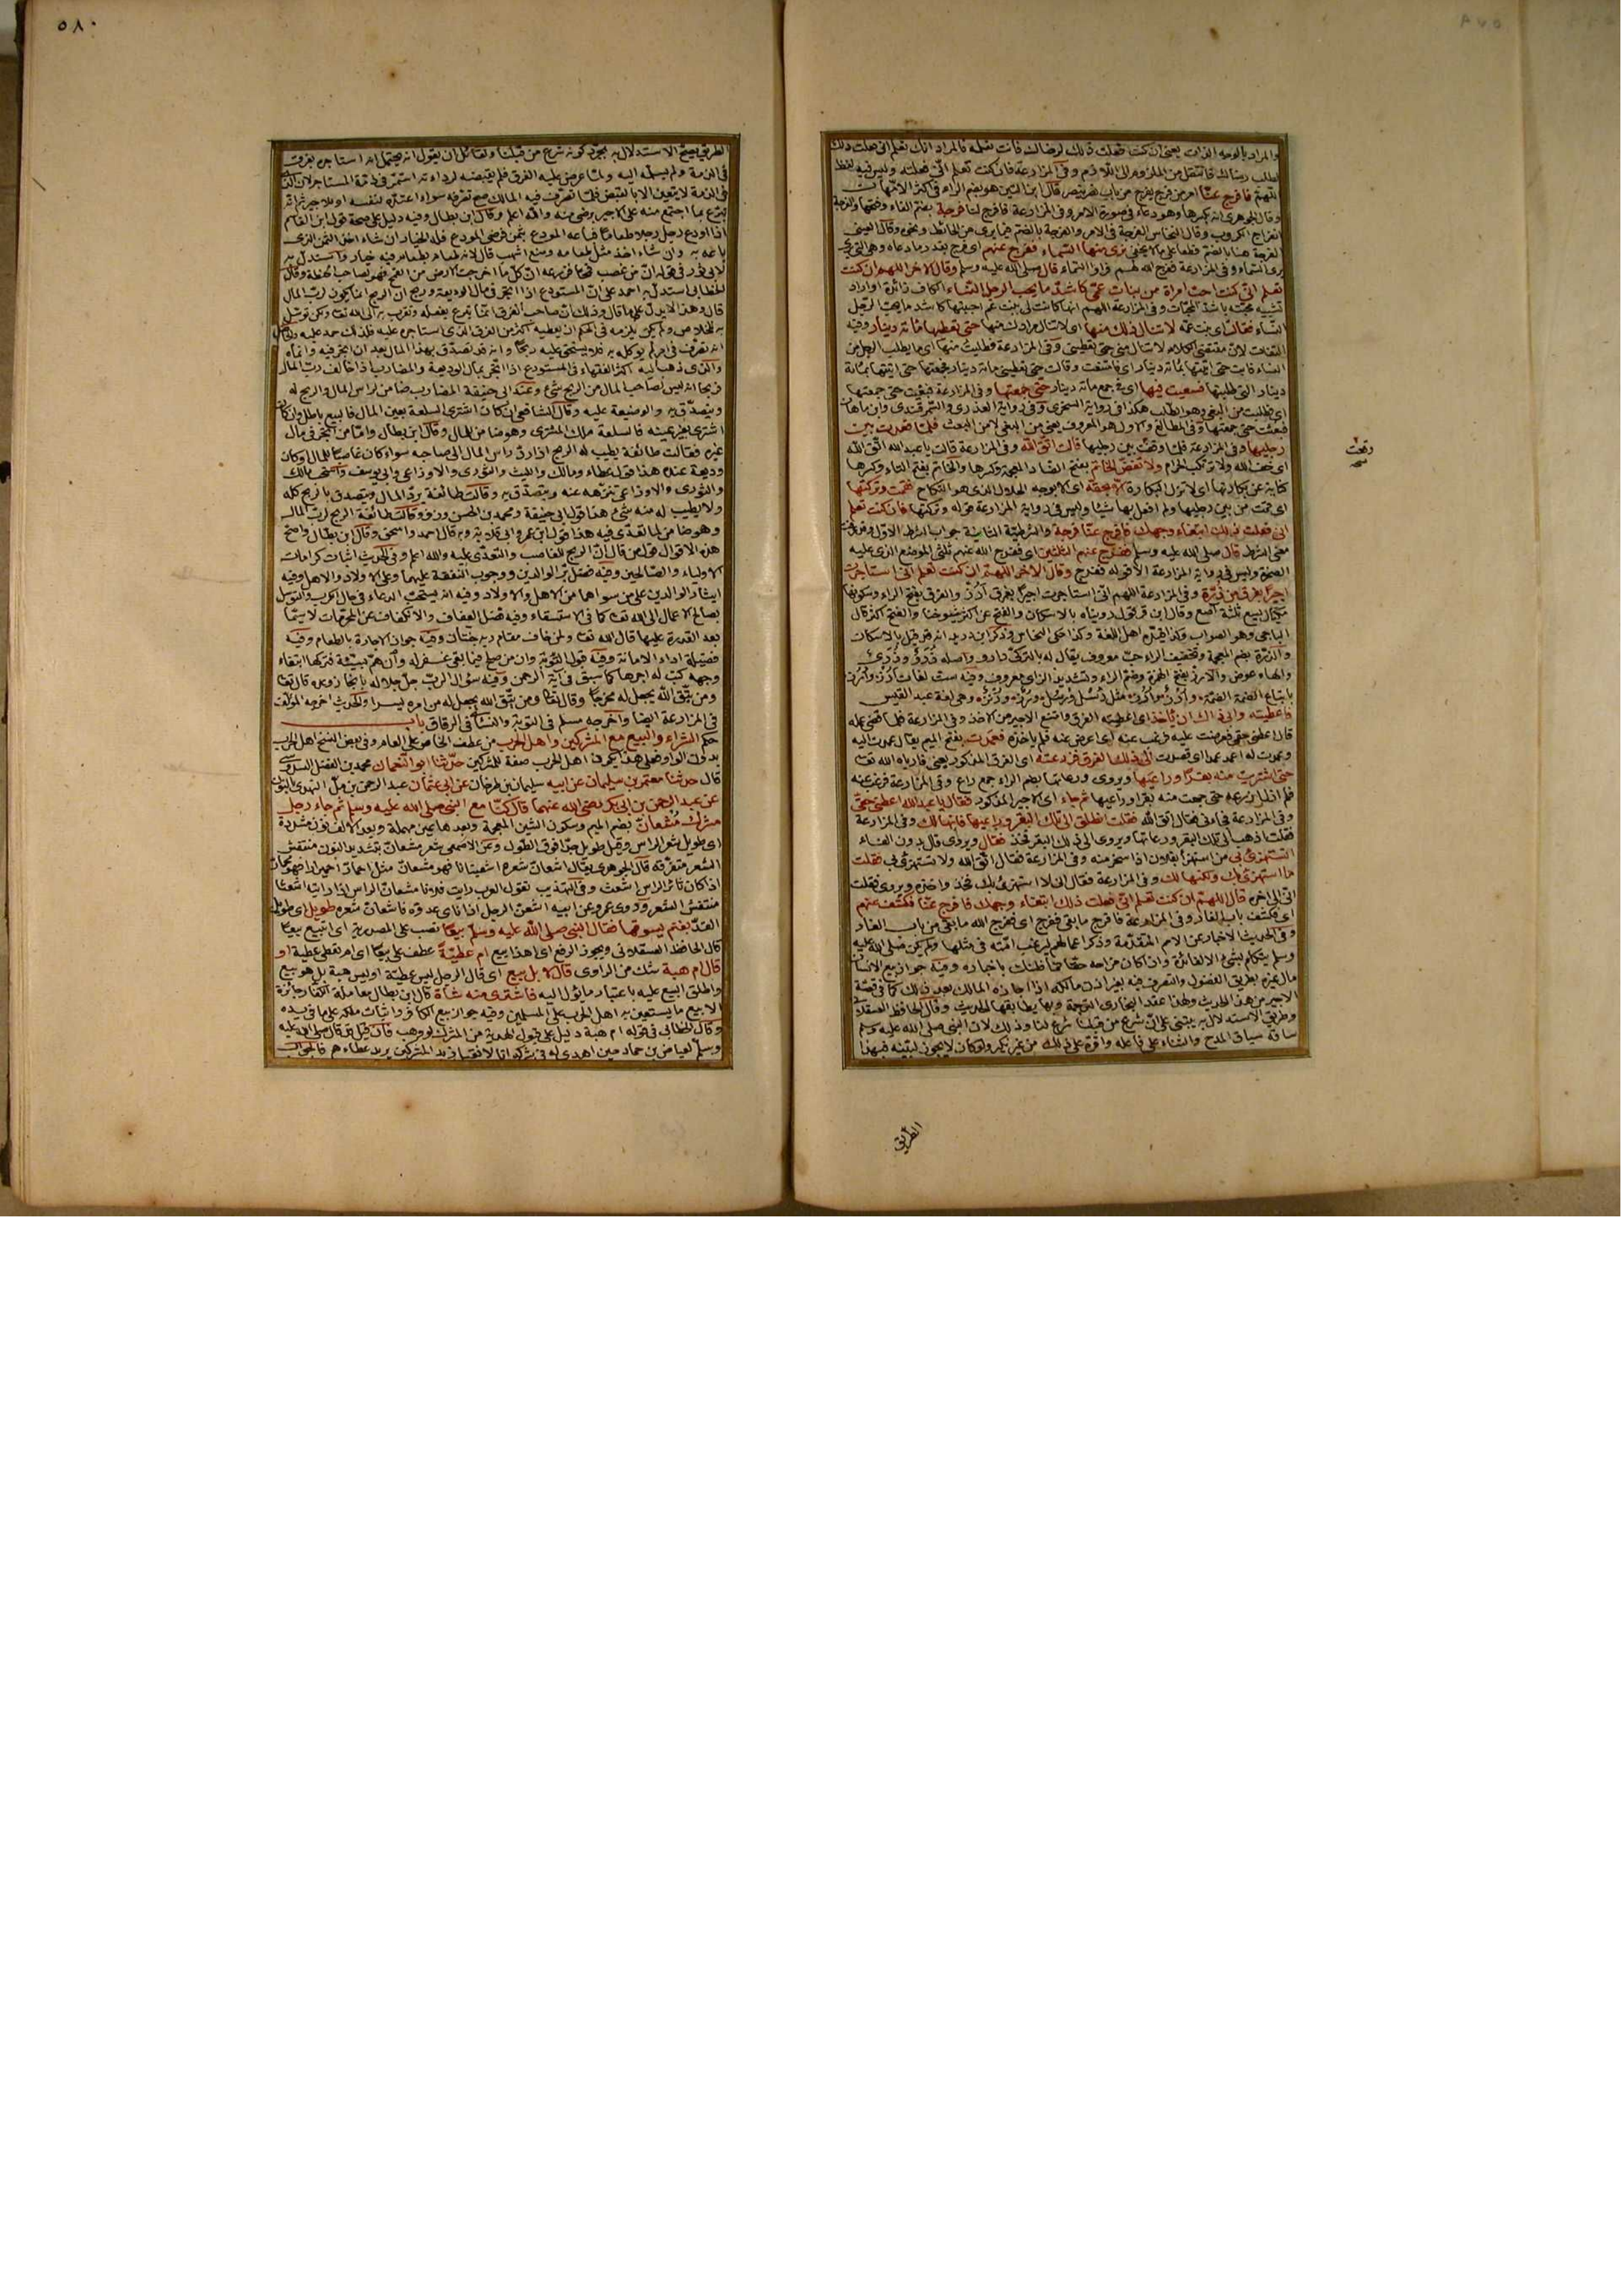 ٥٨٠
والمراد بالوجه الذات يعني ان كنت فعلت ذلك لرضاك فانت تعلمه فالمراد انك تعلم اني فعلت ذلك
لطلب رضاك فانتقل من الملزوم الى اللازم وفي المزارعة فان كنت تعلم اني فعلته وليس فيه لفظ
اللهم فافرج عنا امر من فرج يفرج من باب نصر ينصر قال ابن التين هو بضم الراء في اكثر الامهات
وقال الجوهري انه بكسرها وهو دعاء في صورة الامر وفي المزارعة فافرج لنا فرجة بضم الفاء وفتحها والفرجة
انفراج الكروب وقال النحاس الفرجة في الامر والفرجة بالضم فيما يرى من الحائط ونحوه وقال العيني
الفرجة هنا بالضم قطعا على ما لا يخفى نرى منها السماء ففرج عنهم اي فرج بقدر ما دعاه وهي التي
يرى السماء وفي المزارعة ففرج الله لهم فراوا السماء قال صلى الله عليه وسلم وقال الآخر اللهم ان كنت
تعلم اني كنت احب امراة من بنات عمي كاشد ما يحب الرجل النساء الكاف زائدة او اراد
تشبيه محبته باشد المحبات وفي المزارعة اللهم انها كانت لي بنت عم احببتها كاشد ما يحب الرجل
النساء فقالت اي بنت عمه لا تنال ذلك منها اي لا تنال مرادك منها حتى تعطيها مائة دينار وفيه
التفات لان مقتضى الكلام لا تنال مني حتى تعطيني وفي المزارعة فطلبت منها اي ما يطلب الرجل من
النساء فابت حتى اتيتها بمائة دينار اي فامتنعت وقالت حتى تعطيني مائة دينار فجمعتها حتى اتيتها بمائة
دينار التي طلبتها فسعيت فيها اي في جمع مائة دينار حتى جمعتها وفي المزارعة فبغيت حتى جمعتها
اي طلبت من البغي وهو الطلب هكذا في رواية السجزي وفي رواية العذري والسمرقندي وابن ماهان
فبعثت حتى جمعتها وفي المطالع والاول هو المعروف يعني من البغي لا من البعث فلما قعدت بين
رجليها وفي المزارعة فلما وقعت بين رجليها قالت اتق الله وفي المزارعة قالت يا عبد الله اتق الله
وقعت
صح
اي خف الله ولا ترتكب الحرام ولا تفض الخاتم بفتح الضاد المعجمة وكسرها والخاتم بفتح التاء وكسرها
كناية عن بكارتها اي لا تزل البكارة الا بحقه اي الا بوجه الحلال الذي هو النكاح فقمت وتركتها
اي قمت من بين رجليها ولم افعل بها شيئا وليس في رواية المزارعة قوله وتركتها فان كنت تعلم
اني فعلت ذلك ابتغاء وجهك فافرج عنا فرجة والشرطية الثانية جواب الشرط الاول
معنى الشرط قال صلى الله عليه وسلم ففرج عنهم الثلثين اي ففرج الله عنهم ثلثي الموضع الذي عليه
الصخرة وليس في رواية المزارعة الا قوله ففرج وقال الآخر اللهم ان كنت تعلم اني استاجرت
اجيرا بفرق من ذرة وفي المزارعة اللهم اني استاجرت اجيرا بفرق ارز والفرق بفتح الراء وسكونها
مكيال يسع ثلثة آصع وقال ابن قرقول رويناه بالاسكان والفتح عن اكثر شيوخنا والفتح اكثر قال
الباجي وهو الصواب وكذا قيده اهل اللغة وكذا حكى النحاس وذكر ابن دريد انه قد قيل بالاسكان
والذرة بضم المعجمة وتخفيف الراء حب معروف يقال له بالتركي دارو واصله ذرو وذري
والهاء عوض والارز بفتح الهمزة وضم الراء وتشديد الزاي معروف وفيه ست لغات
باتباع الضمة الضمة وارز وارز مثل رسل ورسل ورز ورنز وهي لغة عبد القيس
فاعطيته وابى ذاك ان ياخذ اي اعطيته الفرق وامتنع الاجير من الاخذ وفي المزارعة فلما قضى عمله
قال اعطني حقي فعرضت عليه فرغب عنه اي اعرض عنه فلم ياخذه فعمدت بفتح الميم يقال عمدت اليه
وعمدت له اعمد عمدا اي قصدت الى ذلك الفرق فزرعته اي الفرق المذكور يعني فارباه الله تعالى
حتى اشتريت منه بقرا وراعيها ويروى ورعاتها بضم الراء جمع راع وفي المزارعة فرغب عنه
فلم ازل ازرعه حتى جمعت منه بقرا وراعيها ثم جاء اي الاجير المذكور فقال يا عبد الله اعطني حقي
وفي المزارعة فجاءني فقال اتق الله فقلت انطلق الى تلك البقر وراعيها فانها لك وفي المزارعة
فقلت اذهب الى تلك البقر ورعاتها ويروى الى ذلك البقر فخذ فقال ويروى قال بدون الفاء
اتستهزئ بي من استهزأ بفلان اذا سخر منه وفي المزارعة فقال اتق الله ولا تستهزئ بي فقلت
ما استهزئ بك ولكنها لك وفي المزارعة فقال اني لا استهزئ بك فخذ واخذه ويروى فقلت
اني الى آخره قال اللهم ان كنت تعلم اني فعلت ذلك ابتغاء وجهك فافرج عنا فكشف عنهم
اي فكشف باب الغار وفي المزارعة فافرج ما بقي ففرج اي ففرج الله ما بقي من باب الغار
وفي الحديث الاخبار عن الامم المتقدمة وذكر اعمالهم ليرغب امته في مثلها ولم يكن صلى الله عليه
وسلم يتكلم بشيء الا لفائدة وان كان مزاحه حقا فما ظنك باخباره وفيه جواز بيع الانسان
مال غيره بطريق الفضول والتصرف فيه بغير اذن مالكه اذا اجازه المالك بعد ذلك كما في قصة
الاجير من هذا الحديث ولهذا عقد البخاري الترجمة وبها يطابقها الحديث وقال الحافظ العسقلاني
وطريق الاستدلال به يبتنى على ان شرع من قبلنا شرع لنا وذلك لان النبي صلى الله عليه وسلم
ساقه سياق المدح والثناء على فاعله واقره على ذلك من غير نكير ولو كان لا يجوز لبينه فبهذا
الطريق
الطريق يصح الاستدلال به بمجرد كونه شرع من قبلنا ولقائل ان يقول انه يحتمل انه استاجره بفرق
في الذمة ولم يسلمه اليه ولما عرض عليه الفرق فلم يقبضه لرداءته استمر في ذمة المستاجر لان
في الذمة لا يتعين الا بالقبض فلما تصرف فيه المالك صح تصرفه سواء اعتبره لنفسه او للاجير ثم انه
تبرع بما اجتمع منه على الاجير برضى منه والله اعلم وقال ابن بطال وفيه دليل على صحة قول ابن القاسم
اذا اودع رجل رجلا طعاما فباعه المودع بثمن فرضي المودع فله الخيار ان شاء اخذ الثمن الذي
باعه به وان شاء اخذ مثل طعامه ومنع اشهب قال لانه طعام بطعام فيه خيار واستدل به
لابي ثور في قوله ان من غصب قمحا فزرعه ان كل ما اخرجت الارض من القمح فهو لصاحب الحنطة وقال
الخطابي استدل به احمد على ان المستودع اذا اتجر في مال الوديعة وربح ان الربح انما يكون لرب المال
قال وهذا لا يدل على ما قال وذلك ان صاحب الفرق انما تبرع بفعله وتقرب به الى الله تعالى ولكن توسل
به للخلاص ولم يكن يلزمه في الحكم ان يعطيه اكثر من الفرق الذي استاجره عليه فلذلك حمد عليه
انه تصرف في امر لم يوكله به فلا يستحق عليه ربحا وانه قد تصدق بهذا المال بعد ان اتجر فيه وانماه
والذي ذهب اليه اكثر الفقهاء في المستودع اذا اتجر بمال الوديعة والمضارب اذا خالف رب المال
فربحا انه ليس لصاحب المال من الربح شيء وعند ابي حنيفة المضارب ضامن لراس المال والربح له
ويتصدق به والوضيعة عليه وقال الشافعي ان كان اشترى السلعة بعين المال فالبيع باطل وان كان
اشترى بغير عينه فالسلعة ملك المشتري وهو ضامن للمال وقال ابن بطال واما من اتجر في مال
غيره فقالت طائفة يطيب له الربح اذا رد راس المال الى صاحبه سواء كان غاصبا للمال او كان
وديعة عنده هذا قول عطاء ومالك والليث والثوري والاوزاعي وابي يوسف واستحب مالك
والثوري والاوزاعي تنزهه عنه ويتصدق به وقالت طائفة يرد المال ويتصدق بالربح كله
ولا يطيب له منه شيء هذا قول ابي حنيفة ومحمد بن الحسن وزفر وقالت طائفة الربح لرب المال
وهو ضامن لما تعدى فيه هذا قول ابن عمر وابي قلابة وبه قال احمد واسحق وقال ابن بطال واصح
هذه الاقوال قول من قال ان الربح للغاصب والمتعدي عليه والله اعلم وفي الحديث اثبات كرامات
الاولياء والصالحين وفيه فضل بر الوالدين ووجوب النفقة عليهما وعلى الاولاد والاهل وفيه
ايثار الوالدين على من سواهما من الاهل والاولاد وفيه انه يستحب الدعاء في حال الكرب والتوسل
بصالح الاعمال الى الله تعالى كما في الاستسقاء وفيه فضل العفاف والانكفاف عن المحرمات لا سيما
بعد القدرة عليها قال الله تعالى ولمن خاف مقام ربه جنتان وفيه جواز الاجارة بالطعام وفيه
فضيلة اداء الامانة وفيه قبول التوبة وان من صلح فيما بقي غفر له وان من هم بسيئة فتركها ابتغاء
وجهه كتب له اجرها كما سبق في آية الرحمن وفيه سؤال الرب جل جلاله بانجاز وعده قال تعالى
ومن يتق الله يجعل له مخرجا وقال تعالى ومن يتق الله يجعل له من امره يسرا والحديث اخرجه المؤلف
في المزارعة ايضا واخرجه مسلم في التوبة والنسائي في الرقاق باب
حكم الشراء والبيع مع المشركين واهل الحرب من عطف الخاص على العام وفي بعض النسخ اهل الحرب
بدون الواو فعلى هذا يكون اهل الحرب صفة للمشركين حدثنا ابو النعمان محمد بن الفضل السدوسي
قال حدثنا معتمر بن سليمان عن ابيه سليمان بن طرخان عن ابي عثمان عبد الرحمن بن مل النهدي بالنون
عن عبد الرحمن بن ابي بكر رضي الله عنهما قال كنا مع النبي صلى الله عليه وسلم ثم جاء رجل
مشرك مشعان بضم الميم وسكون الشين المعجمة وبعدها عين مهملة وبعد الالف نون مشددة
اي طويل شعر الراس وقيل طويل جدا فوق الطول وعن الاصمعي شعر مشعان بتشديد النون منتفش
الشعر متفرقه قال الجوهري يقال اشعان شعره اشعينانا فهو مشعان مثل احمار احميرارا فهو محمار
اذا كان ثائر الراس اشعث وفي التهذيب تقول العرب رايت فلانا مشعان الراس اذا رايته اشعثا
منتفش الشعر وروى عمرو عن ابيه اشعن الرجل اذا ناى عدوه فاشعان شعره طويل اي طويل
القد بغنم يسوقها فقال النبي صلى الله عليه وسلم بيعا نصب على المصدرية اي اتبيع بيعا
قال الحافظ العسقلاني ويجوز الرفع اي اهذا بيع ام عطية عطف على بيعا اي ام تعطي عطية او
قال ام هبة شك من الراوي قال لا بل بيع اي قال الرجل ليس عطية او ليس هبة بل هو بيع
واطلق البيع عليه باعتبار ما يؤل اليه فاشترى منه شاة قال ابن بطال معاملة الكفار جائزة
الا بيع ما يستعين به اهل الحرب على المسلمين وفيه جواز بيع الكافر واثبات ملكه على ما في يده
وقال الخطابي في قوله ام هبة دليل على قبول الهدية من المشرك لو وهب فان قيل قد قال صلى الله عليه
وسلم لعياض بن حماد حين اهدى له في شركه انا لا نقبل زبد المشركين يريد عطاءهم فالجواب